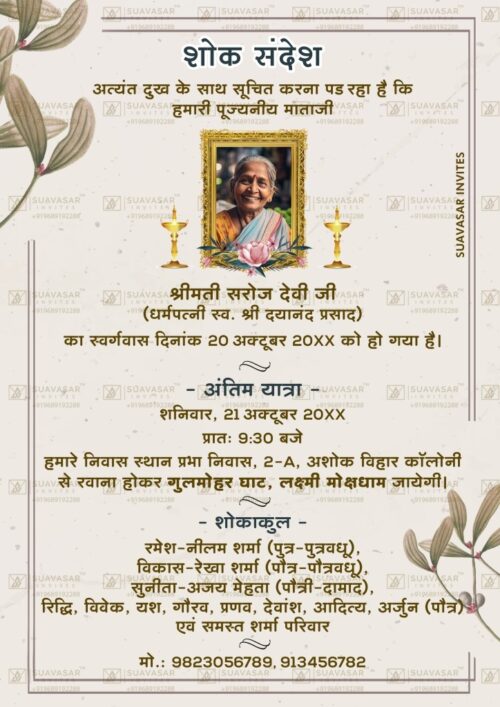 शोक संदेश
अत्यंत दुख के साथ सूचित करना पड रहा है कि
हमारी पूज्यनीय माताजी
SUAVASAR INVITES
श्रीमती सरोज देवी जी
(धर्मपत्नी स्व. श्री दयानंद प्रसाद)
का स्वर्गवास दिनांक 20 अक्टूबर 20XX को हो गया है।
- अंतिम यात्रा -
शनिवार, 21 अक्टूबर 20XX
प्रातः 9:30 बजे
हमारे निवास स्थान प्रभा निवास, 2-A, अशोक विहार कॉलोनी
से रवाना होकर गुलमोहर घाट, लक्ष्मी मोक्षधाम जायेगी।
- शोकाकुल -
रमेश-नीलम शर्मा (पुत्र-पुत्रवधू),
विकास-रेखा शर्मा (पौत्र-पौत्रवधू),
सुनीता-अजय मेहता (पौत्री-दामाद),
रिद्धि, विवेक, यश, गौरव, प्रणव, देवांश, आदित्य, अर्जुन (पौत्र)
एवं समस्त शर्मा परिवार
मो.: 9823056789, 913456782
SUAVASAR
INVITES
+919689192288